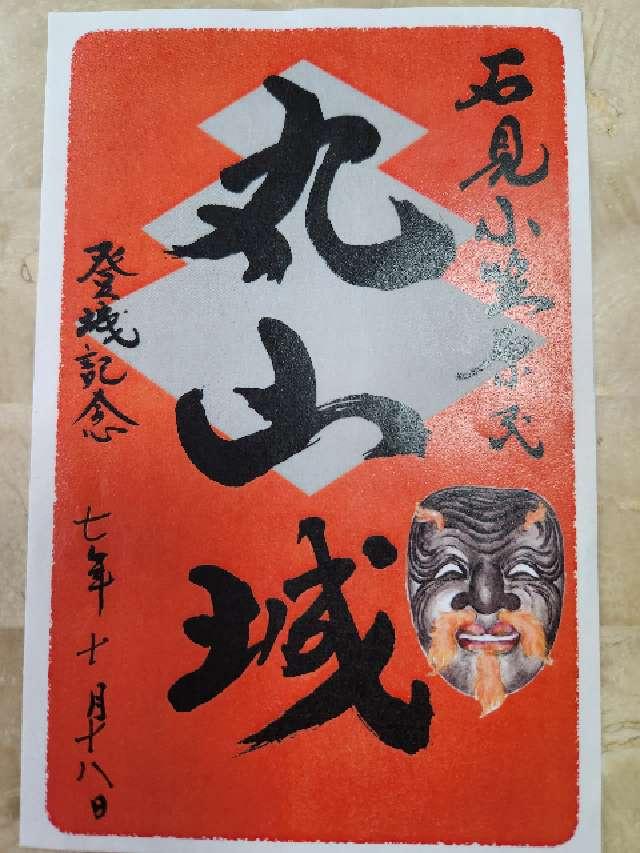 石見小笠原氏
丸山城
登城記念
七年十月十八日